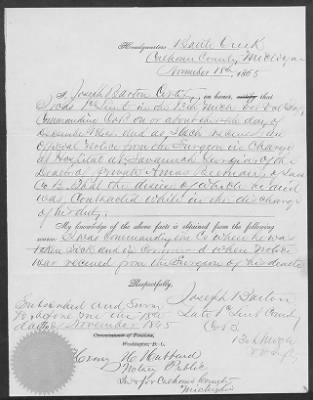 Headquarters, Battle Creek
Calhoun County, Michigan
November 18th, 1865
I, Joseph Barton Certify, on honor, that
I was 1st Lieut in the 13th Mich
Commanding Co B on or about the day of
and as such received an
Official Notice from the Surgeon in Charge
of Hospital at Savannah Georgia of the
Death of private Amos of said
Co B. That the disease of which he died
was Contracted while in the discharge
of his duty.
My knowledge of the above facts is obtained from the following
I was Commanding the Co when he was
taken Sick and in Command when Notice
was received from the Surgeon of his death
Respectfully,
Joseph Barton
Late 1st Lieut Comdg
Co B
Subscribed and Sworn
to before me this 18th
day of November 1865
Commissioner of Pensions,
Washington, D. C.
Henry H Hubbard
Notary Public
in & for Calhoun County
Michigan